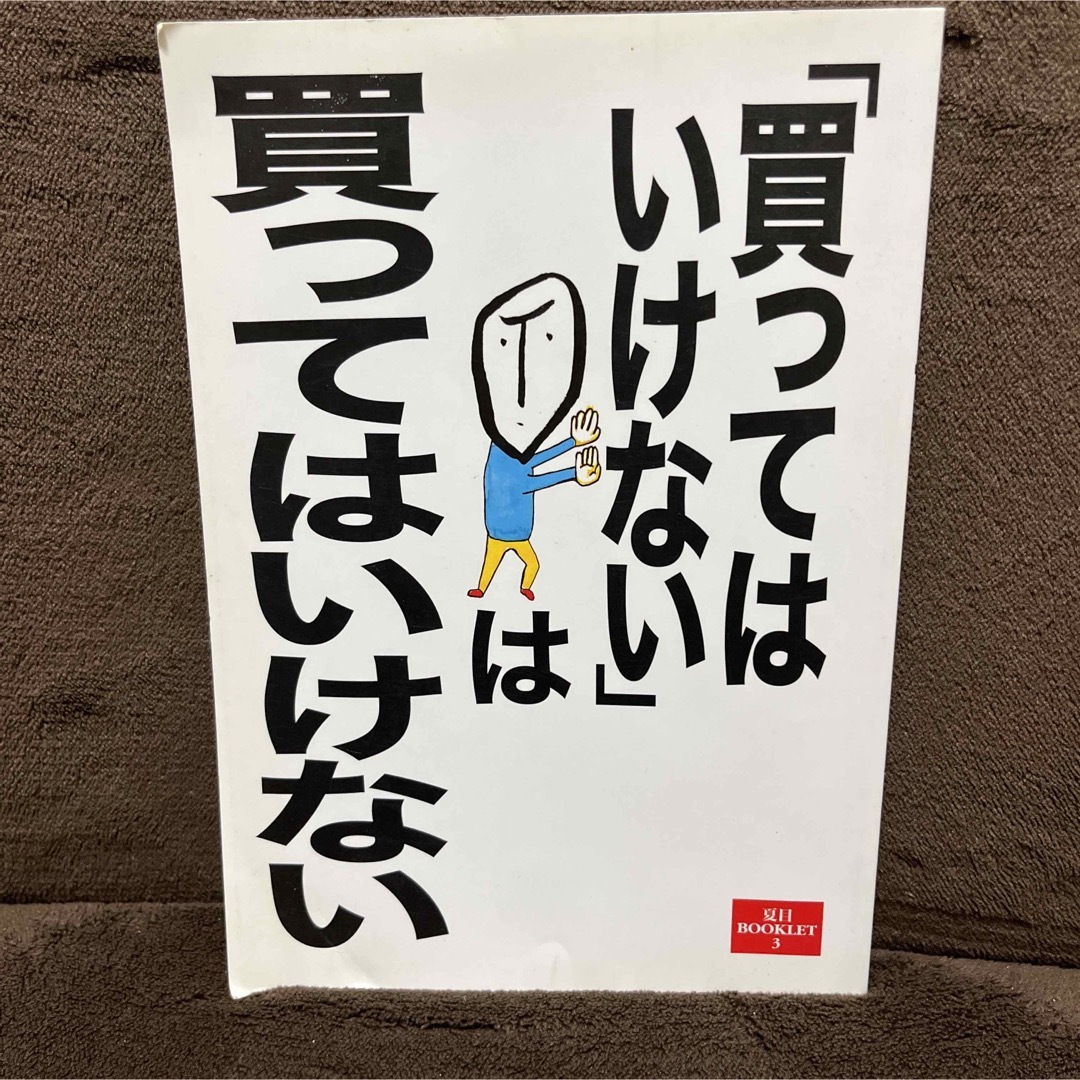 「買っては
いけない」
は
買ってはいけない
夏目
BOOKLET
3